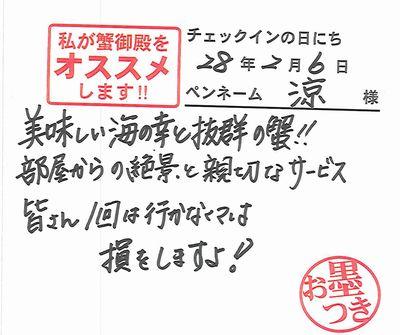 私が蟹御殿を
オススメ
します!!
チェックインの日にち
28年2月6日
ペンネーム 涼 様
美味しい海の幸と抜群の蟹!!
部屋からの絶景と親切なサービス
皆さん1回は行かなくては
損をしますよ!?
お墨つき